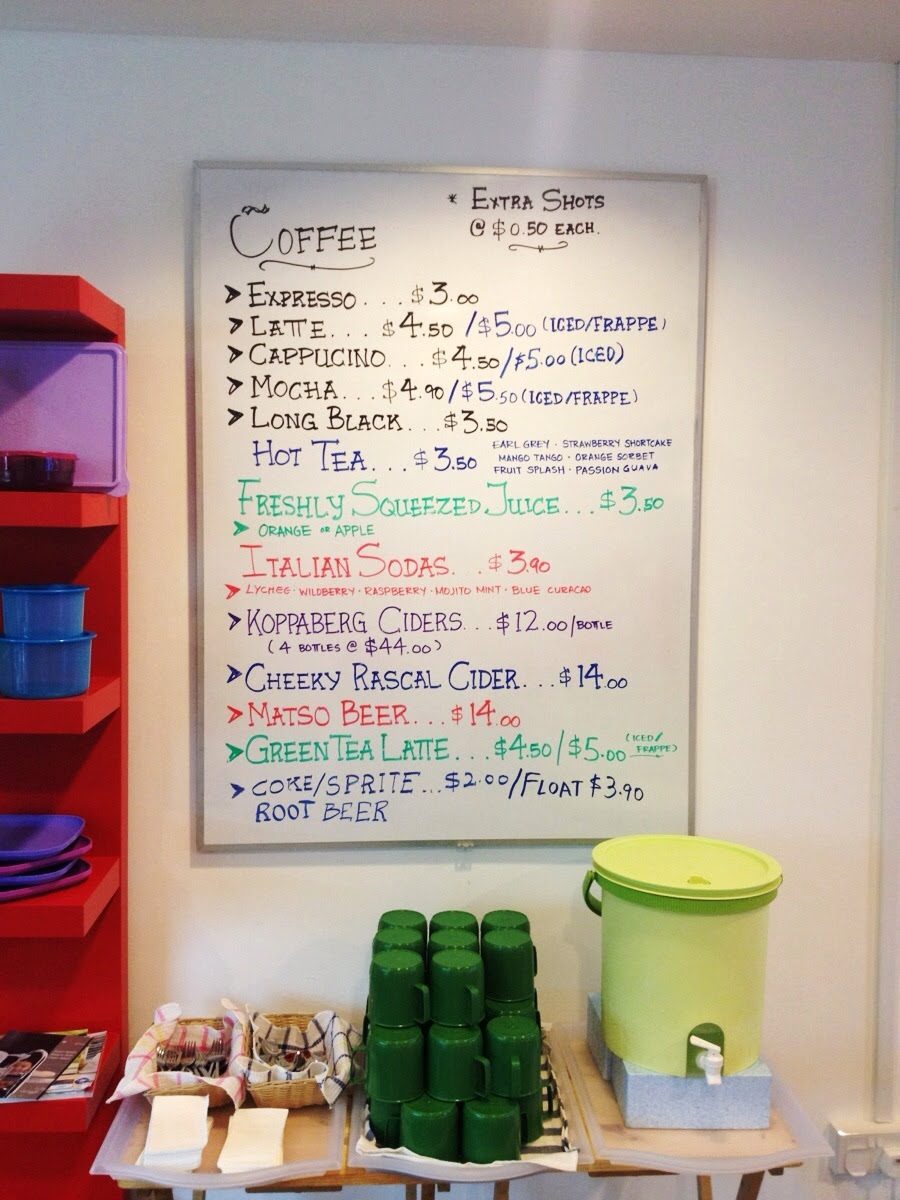 Coffee
* Extra Shots
@ $0.50 each.
➤ Expresso . . . $3.00
➤ Latte . . . $4.50 / $5.00 (Iced/Frappe)
➤ Cappucino . . . $4.50/$5.00 (Iced)
➤ Mocha . . . $4.90/$5.50 (Iced/Frappe)
➤ Long Black . . . $3.50
Hot Tea . . . $3.50
Earl Grey · Strawberry Shortcake
Mango Tango · Orange Sorbet
Fruit Splash · Passion Guava
Freshly Squeezed Juice . . . $3.50
➤ Orange or Apple
Italian Sodas . . . $3.90
➤ Lychee · Wildberry · Raspberry · Mojito Mint · Blue Curacao
➤ Koppaberg Ciders . . . $12.00/bottle
(4 bottles @ $44.00)
➤ Cheeky Rascal Cider . . . $14.00
➤ Matso Beer . . . $14.00
➤ Green Tea Latte . . . $4.50/$5.00 (Iced/
Frappe)
➤ Coke/Sprite ... $2.00/Float $3.90
Root Beer